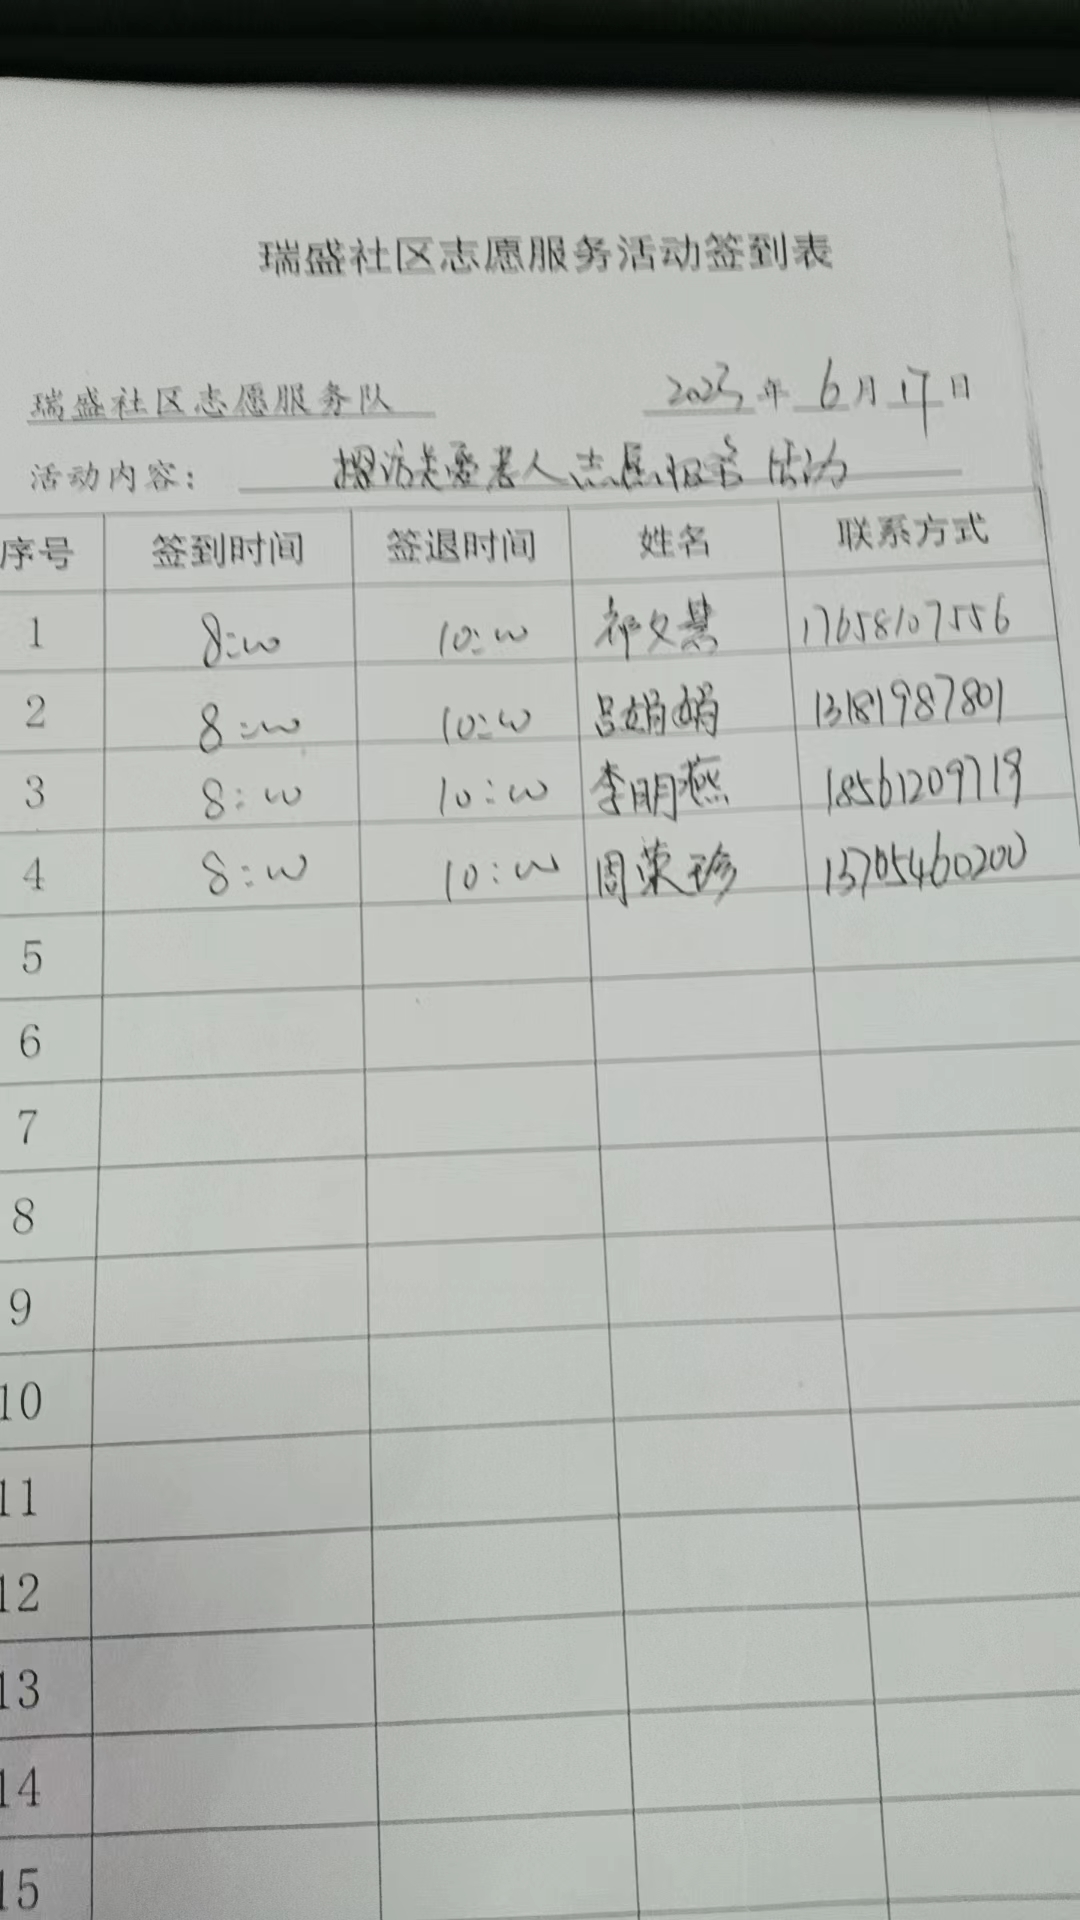 瑞盛社区志愿服务活动签到表
瑞盛社区志愿服务队 2023年6月17日
活动内容: 探访关爱老人志愿服务活动
序号 签到时间 签退时间 姓名 联系方式
1 8:00 10:00 祁文慧 17658107556
2 8:00 10:00 吕娟娟 13181987801
3 8:00 10:00 李明燕 18561209719
4 8:00 10:00 周荣珍 13705460200
5
6
7
8
9
10
11
12
13
14
15